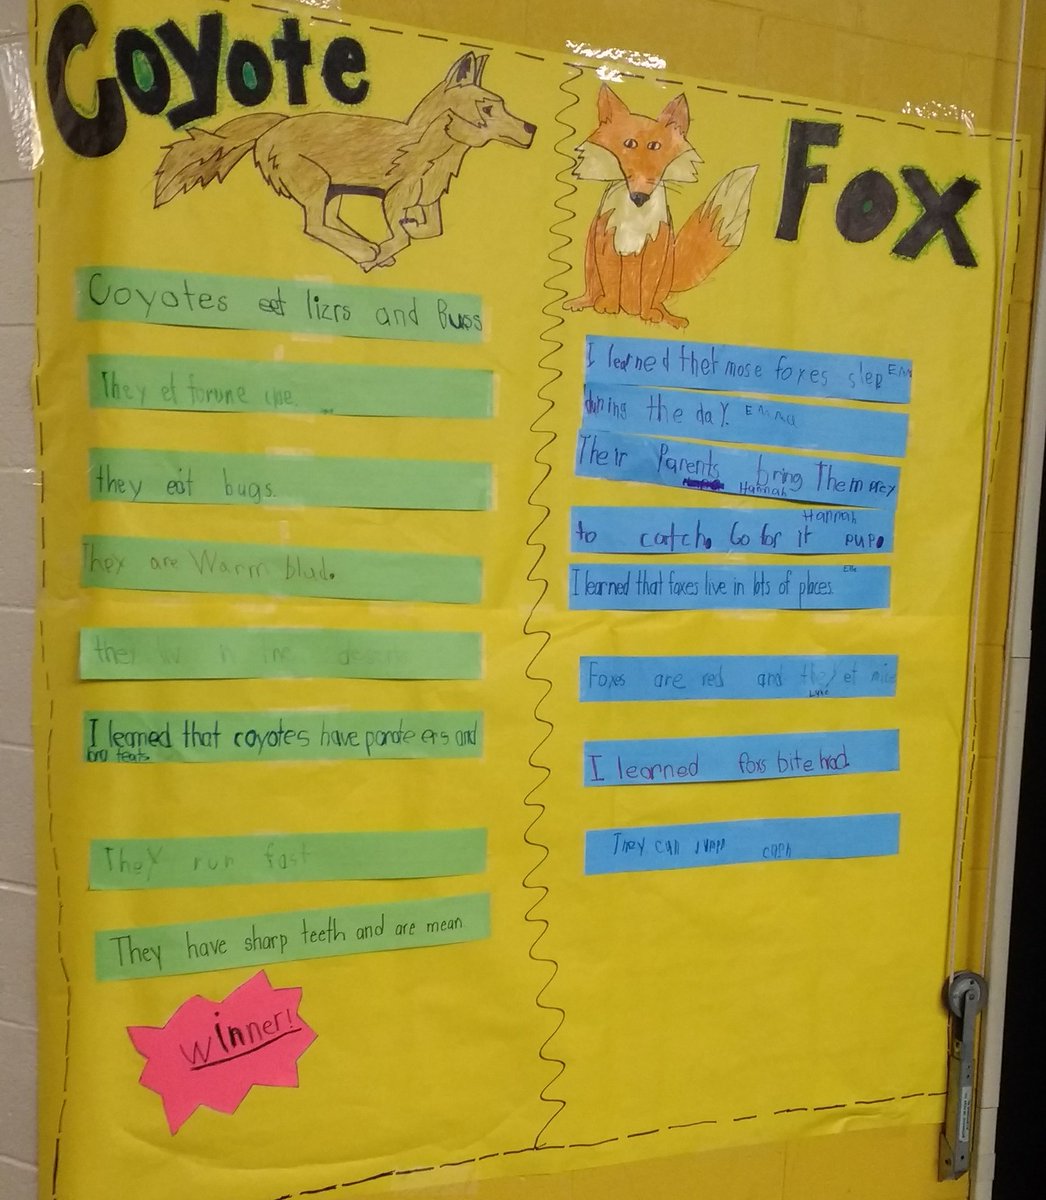 Coyote
Coyotes eet lizrs and Bugs
They et forune
they eat bugs.
They are Warm blud.
they
I learned that coyotes have ponde ers and
bro teats
They run fast
They have sharp teeth and are mean.
winner!
Fox
I learned thet mose foxes slep Emma
during the day. Emma
Their Parents bring Them prey
Hannah
Hannah
to catch. Go for it pup.
Elle
I learned that foxes live in lots of places.
Foxes are red and they et mice
Luke
I learned foxs bite hrad.
They can jump